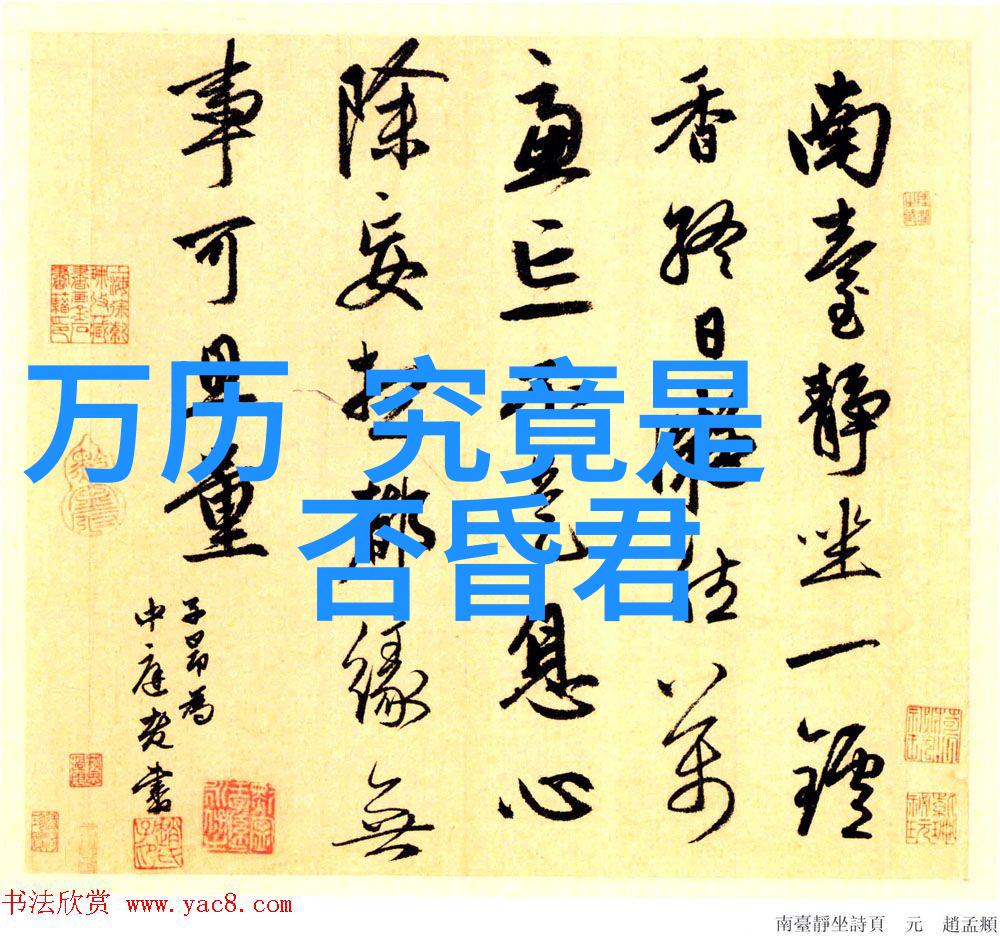 万历 究竟是
否昏君
南臺靜坐一鑪
香終日萬
慮亡不是息心
除妄想都緣無
事可思量
子昂為
中庭老書
书法欣赏 www.yac8.com
南臺靜坐詩頁 元 趙孟頫